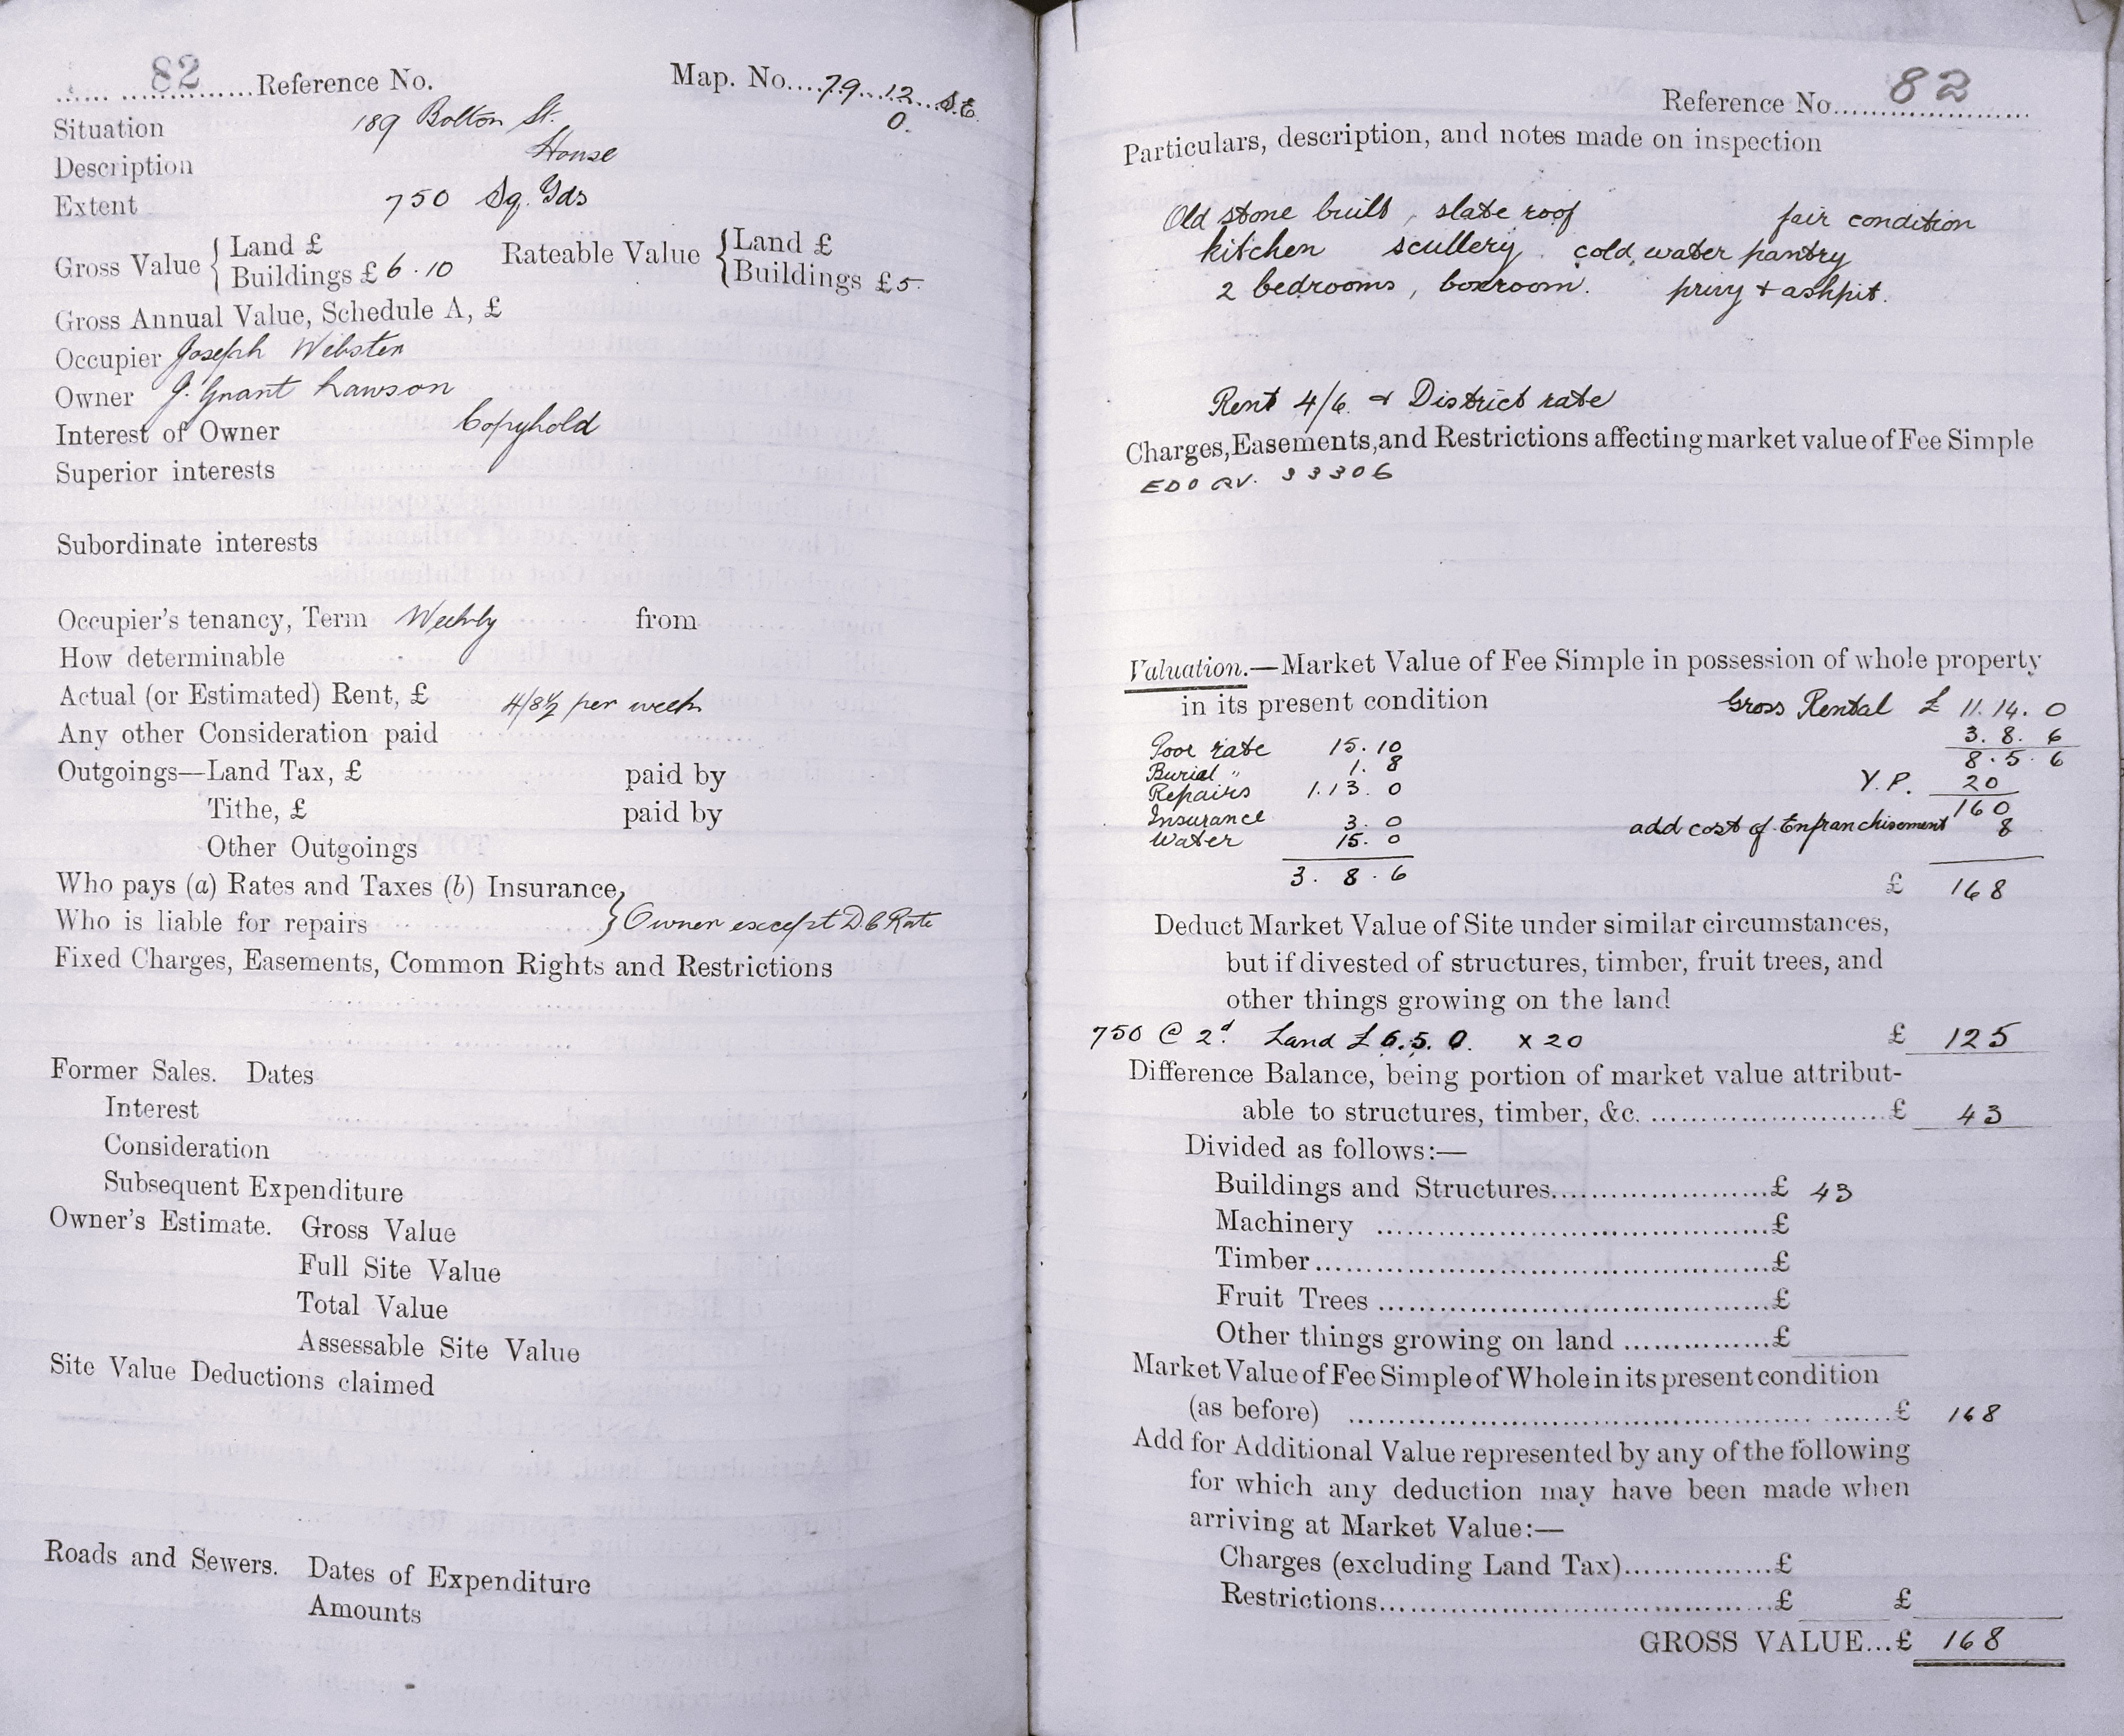 82 Reference No. Map. No. 79. 12. S.E.
0.
Situation 189 Bolton St.
Description House
Extent 750 Sq. Yds
Gross Value { Land £ Rateable Value { Land £
Buildings £ 6 . 10 Buildings £ 5
Gross Annual Value, Schedule A, £
Occupier Joseph Webster
Owner J. Grant Lawson
Interest of Owner Copyhold
Superior interests
Subordinate interests
Occupier's tenancy, Term Weekly from
How determinable
Actual (or Estimated) Rent, £ 4/8½ per week
Any other Consideration paid
Outgoings—Land Tax, £ paid by
Tithe, £ paid by
Other Outgoings
Who pays (a) Rates and Taxes (b) Insurance,
Who is liable for repairs } Owner except D.C Rate
Fixed Charges, Easements, Common Rights and Restrictions
Former Sales. Dates
Interest
Consideration
Subsequent Expenditure
Owner's Estimate. Gross Value
Full Site Value
Total Value
Assessable Site Value
Site Value Deductions claimed
Roads and Sewers. Dates of Expenditure
Amounts
Reference No. 82
Particulars, description, and notes made on inspection
Old stone built, slate roof fair condition
kitchen scullery. cold water pantry
2 bedrooms, boxroom. privy + ashpit.
Rent 4/6. + District rate
Charges, Easements, and Restrictions affecting market value of Fee Simple
33306
Valuation.—Market Value of Fee Simple in possession of whole property
in its present condition Gross Rental £ 11. 14. 0
Poor rate 15. 10 3. 8. 6
Burial " 1. 8 8. 5. 6
Repairs 1. 13. 0 Y.P. 20
Insurance 3. 0 160
Water 15. 0 add cost of Enfranchisement 8
3. 8. 6 £ 168
Deduct Market Value of Site under similar circumstances,
but if divested of structures, timber, fruit trees, and
other things growing on the land
750 @ 2d Land £ 6. 5. 0. x 20 £ 125
Difference Balance, being portion of market value attribut-
able to structures, timber, &c. £ 43
Divided as follows:—
Buildings and Structures £ 43
Machinery £
Timber £
Fruit Trees £
Other things growing on land £
Market Value of Fee Simple of Whole in its present condition
(as before) £ 168
Add for Additional Value represented by any of the following
for which any deduction may have been made when
arriving at Market Value:—
Charges (excluding Land Tax) £
Restrictions £ £
GROSS VALUE...£ 168